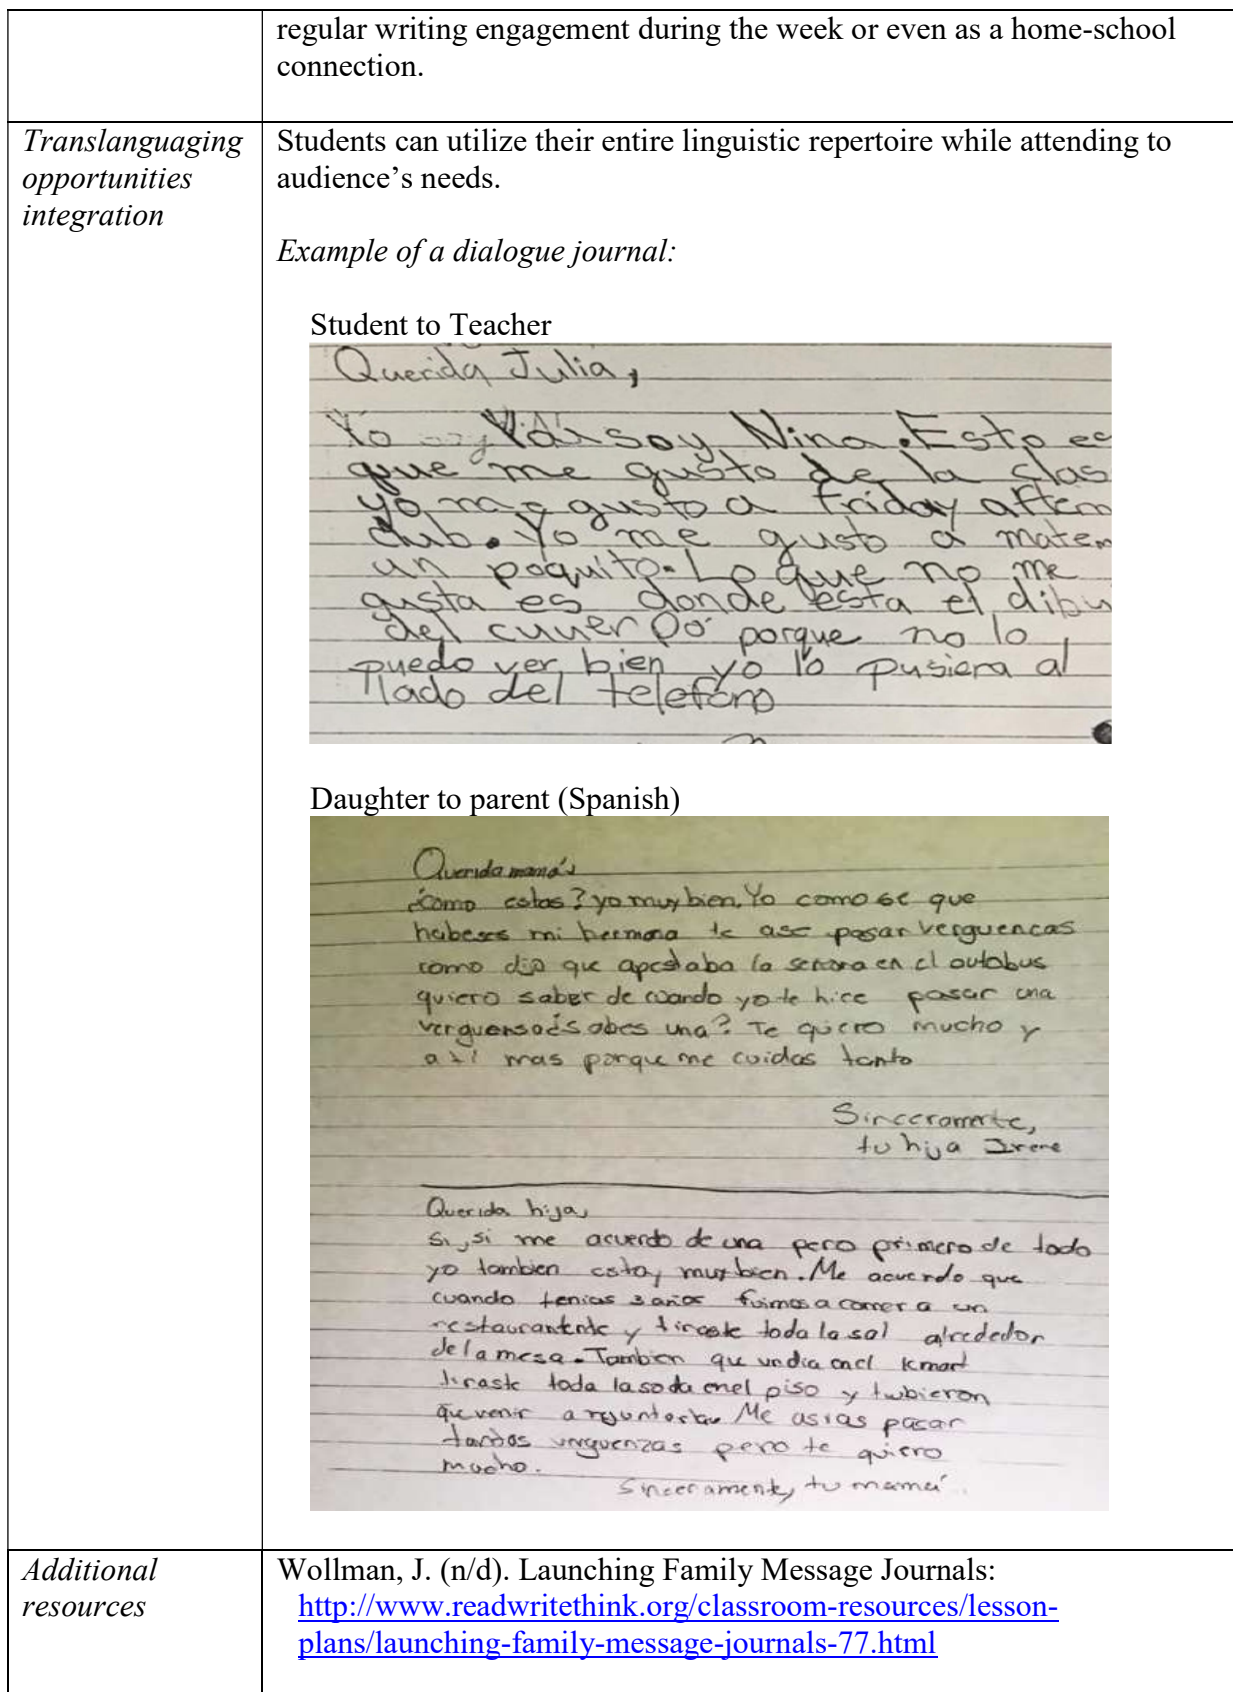 regular writing engagement during the week or even as a home-school
connection.
Translanguaging
opportunities
integration
Students can utilize their entire linguistic repertoire while attending to
audience’s needs.
Example of a dialogue journal:
Student to Teacher
Querida Julia,
Yo soy Nina. Esto es
que me gusto de la clas
yo me gusto a friday aftern
club. Yo me gusto a matem
un poquito. Lo que no me
gusta es donde esta el dibu
del cuuerpo porque no lo
puedo ver bien yo lo pusiera al
llado del telefono
Daughter to parent (Spanish)
Querida mamá,
¿como estas? yo muy bien. Yo como se que
mi hermana te ase pasar verguencas
como dijo que apestaba la senora en el autobus
quiero saber de cuando yo te hice pasar una
sabes una? Te quiero mucho y
mas porque me cuidas tanto
Sinceramente,
tu hija Irene
Querida hija,
si, si me acuerdo de una pero primero de todo
yo tambien estoy muy bien. Me acuerdo que
cuando tenias 3 años fuimos a comer a un
y tiraste toda la sal alrededor
de la mesa. Tambien que un dia en el kmart
tiraste toda la soda en el piso y tubieron
que venir a Me asias pasar
tantas verguenzas pero te quiero
mucho.
Sinceramente, tu mamá.
Additional
resources
Wollman, J. (n/d). Launching Family Message Journals:
http://www.readwritethink.org/classroom-resources/lesson-
plans/launching-family-message-journals-77.html